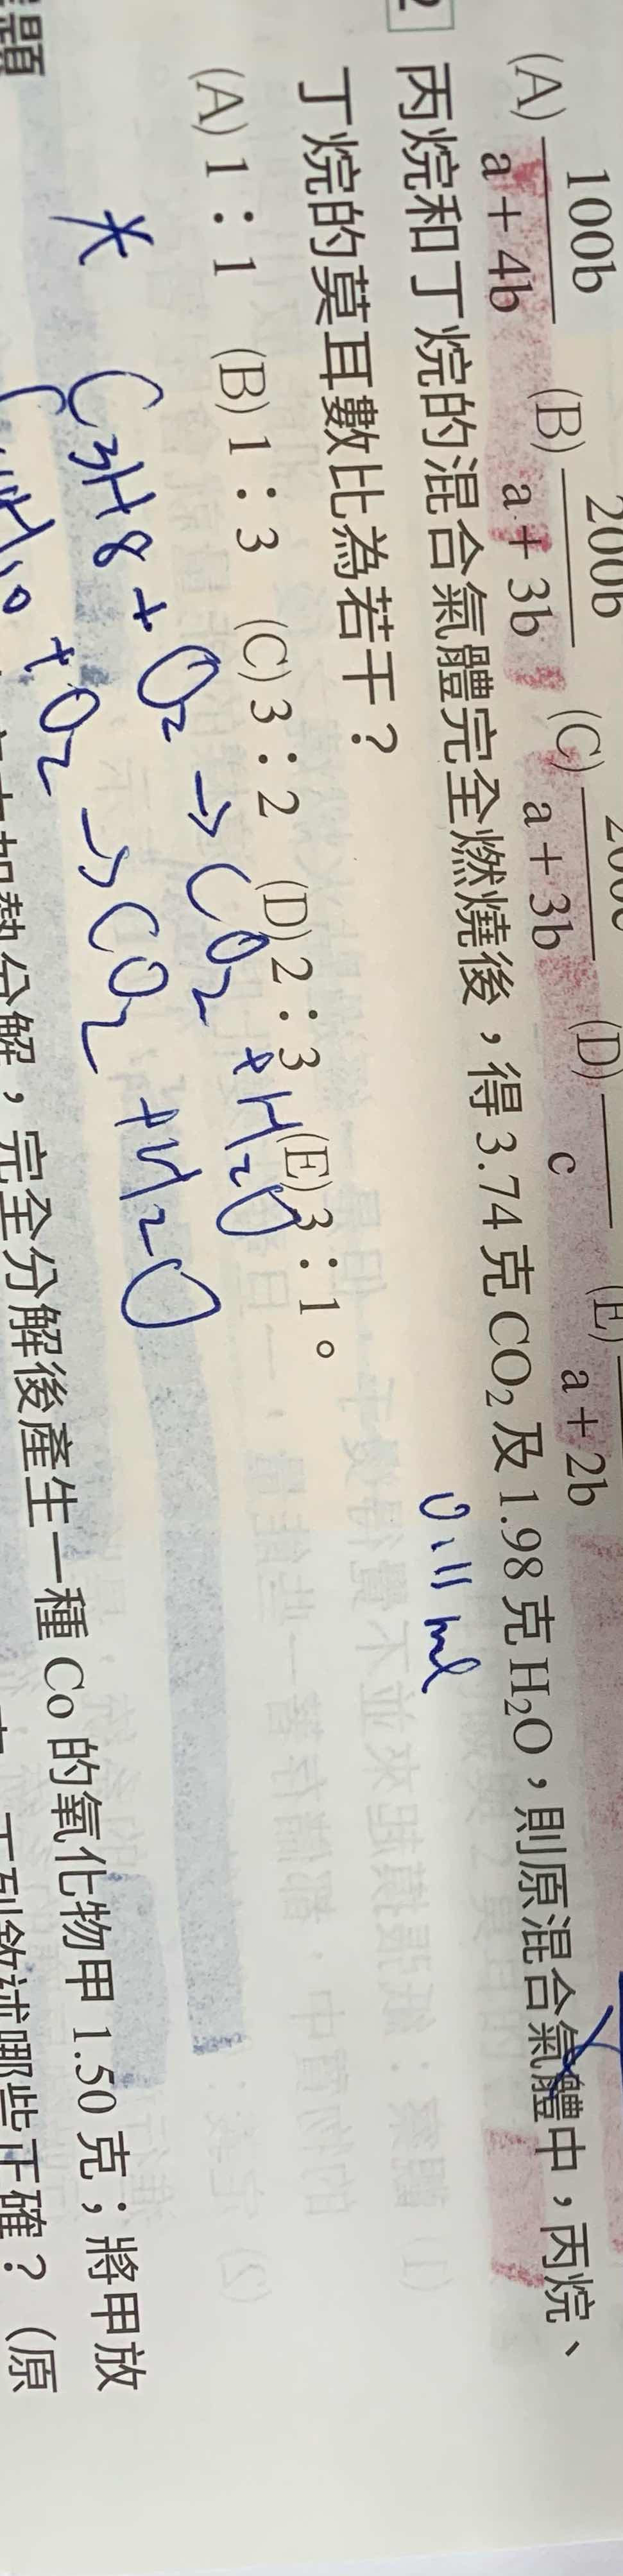 (A) 100b / a+4b (B) 200b / a+3b (C) / a+3b (D) / c (E) / a+2b
2 丙烷和丁烷的混合氣體完全燃燒後，得3.74克CO₂及1.98克H₂O，則原混合氣體中，丙烷、
0.11 mol
丁烷的莫耳數比為若干？
(A) 1：1 (B) 1：3 (C) 3：2 (D) 2：3 (E) 3：1。
* C3H8 + O2 → CO2 + H2O
H10 + O2 → CO2 + H2O
加熱分解，完全分解後產生一種Co的氧化物甲1.50克；將甲放
題
下列敘述哪些正確？（原